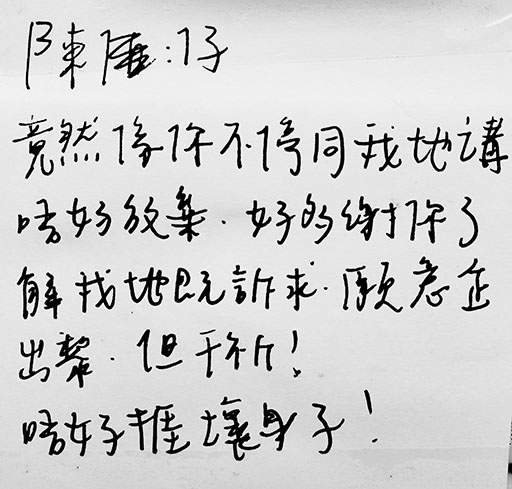 陳 仔
竟然係你不停同我地講
唔好放棄. 好多謝你了
解我地既訴求. 願意企
出黎. 但千祈!
唔好捱壞身子!